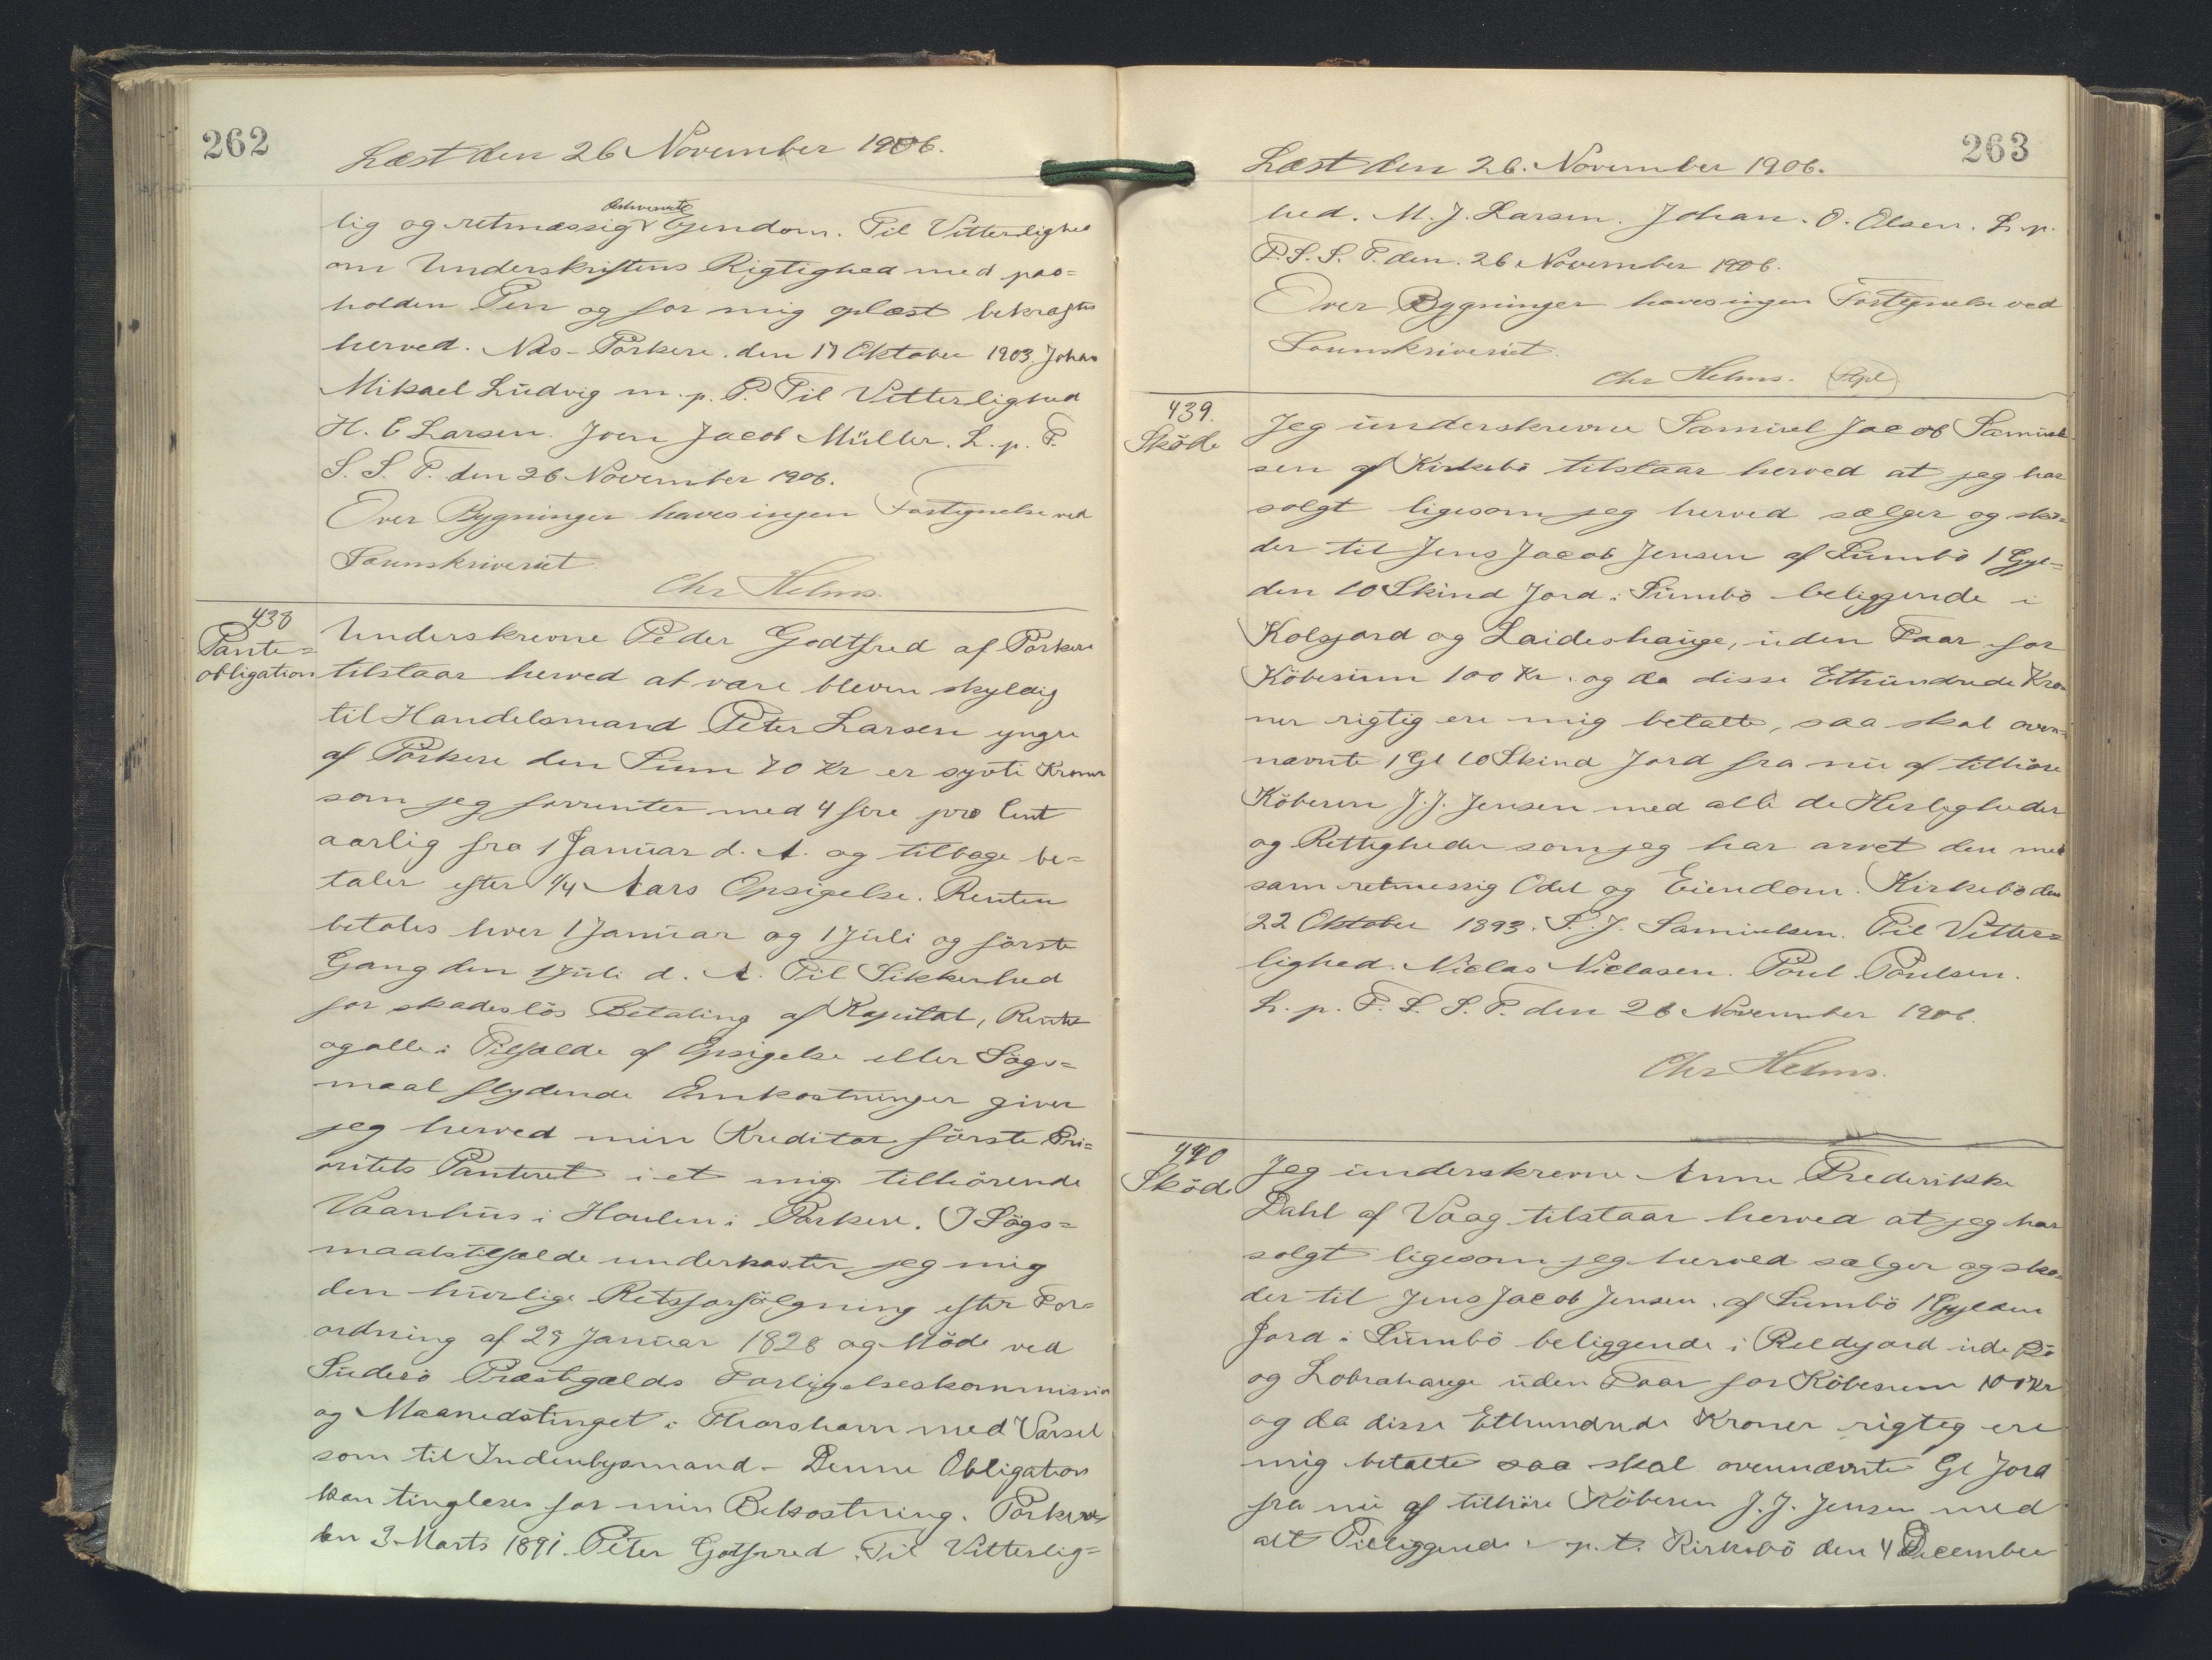 262
Læst den 26 November 1906.
lig og retmæssig erhvervet Ejendom. Til Vitterlighed
om Underskriftens Rigtighed med paa=
holden Pen og for mig oplæst bekræftes
herved. Nes-Porkere. den 17 Oktober 1903. Johan
Mikael Ludvig m. p. P. Til Vitterlighed
H. E Larsen. Joen Jacob Müller. L. p. F.
S. S. T. den 26 November 1906.
Over Bygninger haves ingen Fortegnelse ved
Sorenskriveriet.
Chr Helms.
438
Pante=
obligation
Underskrevne Peder Godtfred af Porkere
tilstaar herved at være bleven skyldig
til Handelsmand Peter Larsen yngre
af Porkere den Sum 70 Kr er syvti Kroner
som jeg forrenter med 4 fire pro Cent
aarlig fra 1 Januar d. A. og tilbage be=
taler efter 1/4 Aars Opsigelse. Renten
betales hver 1 Januar og 1 Juli og første
Gang den 1 Juli d. A. Til Sikkerhed
for skadesløs Betaling af Kapital, Rente
og alle i Tilfælde af Opsigelse eller Søgs=
maal flydende Omkostninger giver
jeg herved min Kreditor første Pri=
oritets Panteret i et mig tilhørende
Vaanhus i Houlen i Porkere. I Søgs=
maalstilfælde underkaster jeg mig
den hurlige Retsforfølgning efter For=
ordning af 29 Januar 1828 og Møde ved
Suderø Præstegjælds Forligelseskommission
og Maanedstinget i Thorshavn med Varsel
som til Indenbysmand - Denne Obligation
kan tinglæses for min Bekostning. Porkere
den 3 Marts 1891. Peter Gotfred. Til Vitterlig=
263
Læst den 26. November 1906.
hed. M. J. Larsen. Johan. O. Olsen. L. p.
F. S. S. T. den. 26 November 1906.
Over Bygninger haves ingen Fortegnelse ved
Sorenskriveriet.
Chr Helms.
439.
Skøde
Jeg underskrevne Samuel Jacob Samuel
sen af Kirkebø tilstaar herved at jeg har
solgt ligesom jeg herved sælger og skø=
der til Jens Jacob Jensen af Sumbø 1 Gyl=
den 10 Skind Jord i Sumbø beliggende i
Kolsjord og Laideshauge, uden Faar for
Købesum 100 Kr. og da disse Ethundrede Kro=
ner rigtig ere mig betalte, saa skal oven=
nævnte 1 Gl 10 Skind Jord fra nu af tilhøre
Køberen J. J. Jensen med alle de Herligheder
og Rettigheder som jeg har arvet den med
sam retmessig Odel og Eiendom. Kirkebø den
22 Oktober 1893. S. J. Samuelsen. Til Vitter=
lighed. Niclas Niclasen. Poul Poulsen.
L. p. F. S. S. T. den 26 November 1906.
Chr Helms.
440
Skøde
Jeg underskrevne Anne Frederikke
Dahl af Vaag tilstaar herved at jeg har
solgt ligesom jeg herved sælger og skø=
der til Jens Jacob Jensen. af Sumbø 1 Gylden
Jord i Sumbø beliggende i Reldejord ude Rø
og Lobrahauge uden Faar for Købesum 100 Kr
og da disse Ethundrede Kroner rigtig ere
mig betalte saa skal ovennævnte Gl Jord
fra nu af tilhøre Køberen J. J. Jensen med
alt Tilliggende - p. t. Kirkebø den 4 December